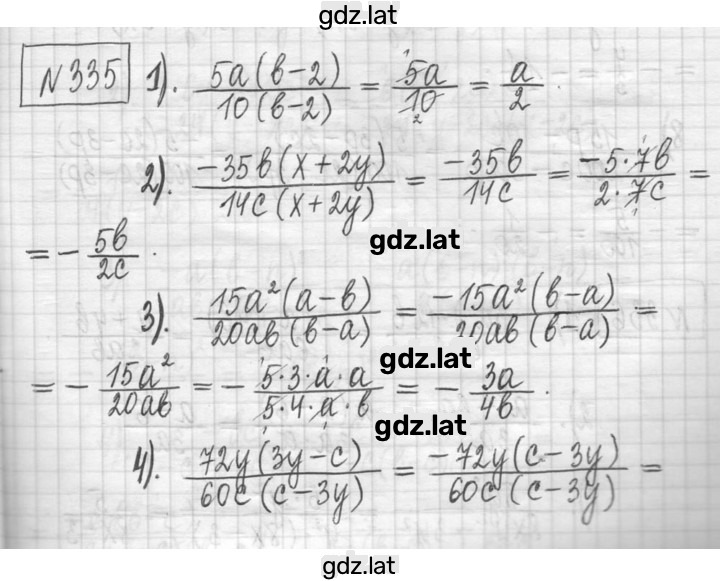 gdz.lat
N 335 1). 5a(b-2)/10(b-2) = 5a/10 2 = a/2 .
2). -35b(x+2y)/14c(x+2y) = -35b/14c = -5·7b/2·7c =
gdz.lat
= - 5b/2c .
3). 15a²(a-b)/20ab(b-a) = -15a²(b-a)/20ab(b-a) =
gdz.lat
= - 15a²/20ab = - 5·3·a·a/5·4·a·b = - 3a/4b .
gdz.lat
4). 72y(3y-c)/60c(c-3y) = -72y(c-3y)/60c(c-3y) =
gdz.lat